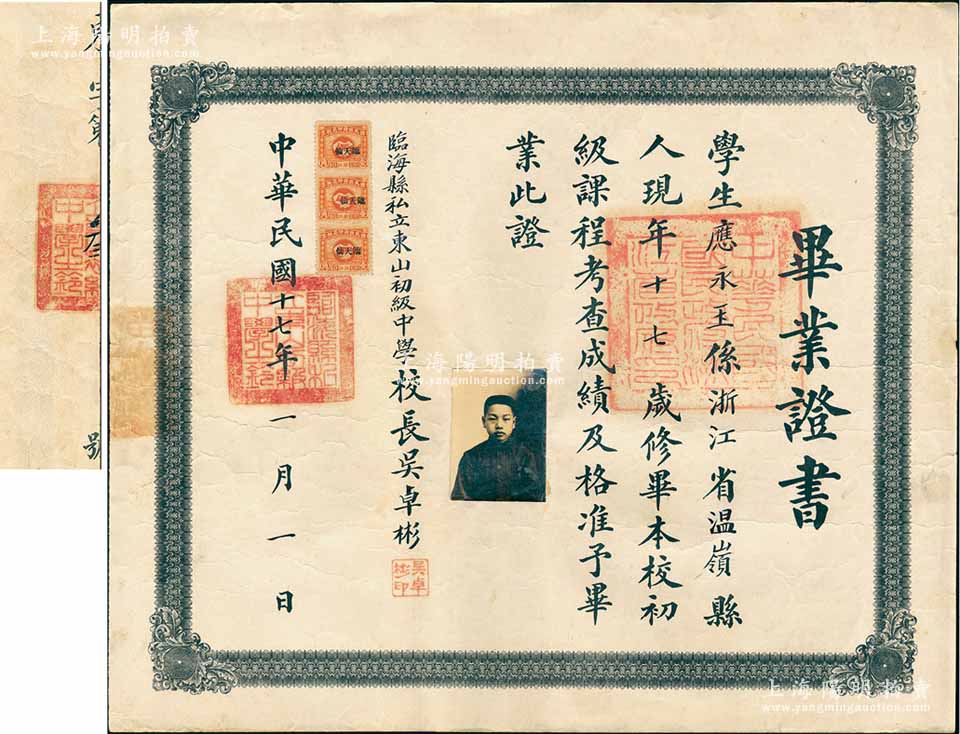 畢業證書
學生應永玉係浙江省温嶺縣
人現年十七歲修畢本校初
級課程考查成績及格准予畢
業此證
臨海縣私立東山初級中學校長吳卓彬
吳卓彬印
中華民國十七年一月一日
臨天仙
臨天仙
臨天仙
號
上海陽明拍賣
www.yangmingauction.com
上海陽明拍賣
www.yangmingauction.com
上海陽明拍賣
www.yangmingauction.com